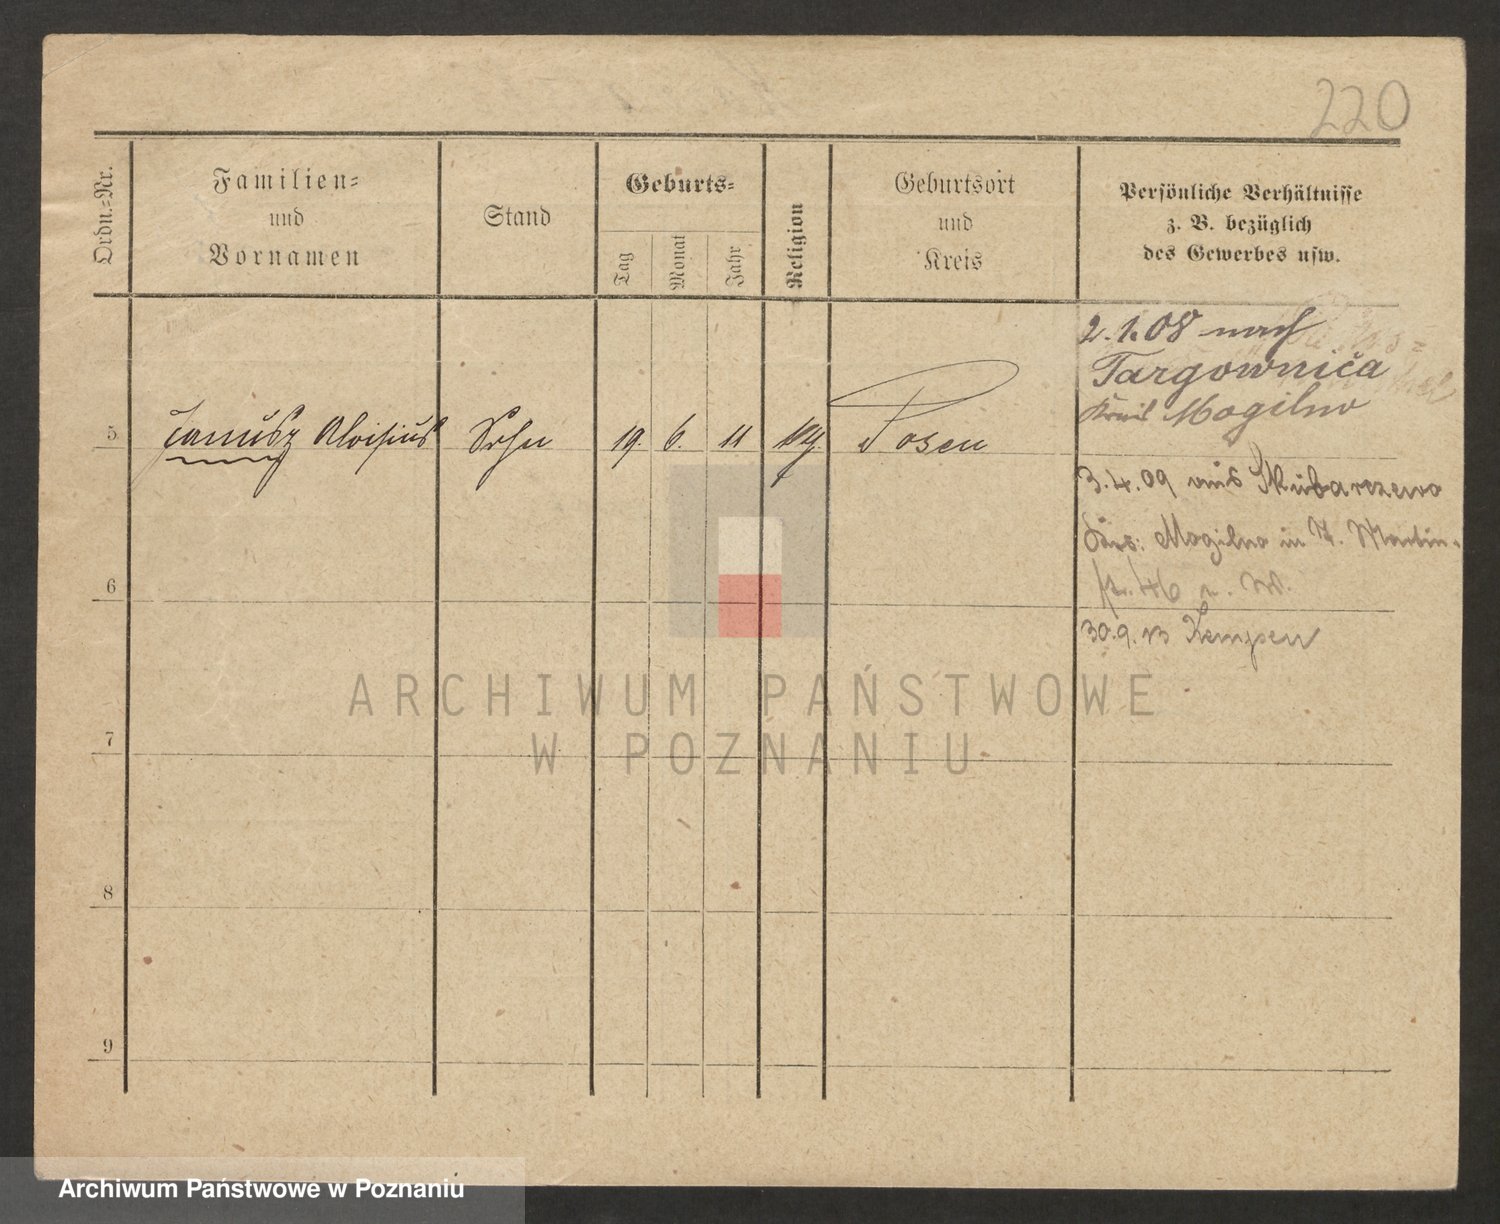 220
Ordn.-Nr.
Familien-
und
Vornamen
Stand
Geburts-
Tag
Monat
Jahr
Religion
Geburtsort
und
Kreis
Persönliche Verhältnisse
z. B. bezüglich
des Gewerbes usw.
2.1.08 nach
Targownica
Kreis Mogilno
5 Janusz Aloisius Sohn 19. 6. 11 Posen
3.4.09 aus Skubarczewo
Mogilno in St. Martin-
46
30.9.13 Kempen
6
7
8
9
ARCHIWUM PAŃSTWOWE
W POZNANIU
Archiwum Państwowe w Poznaniu